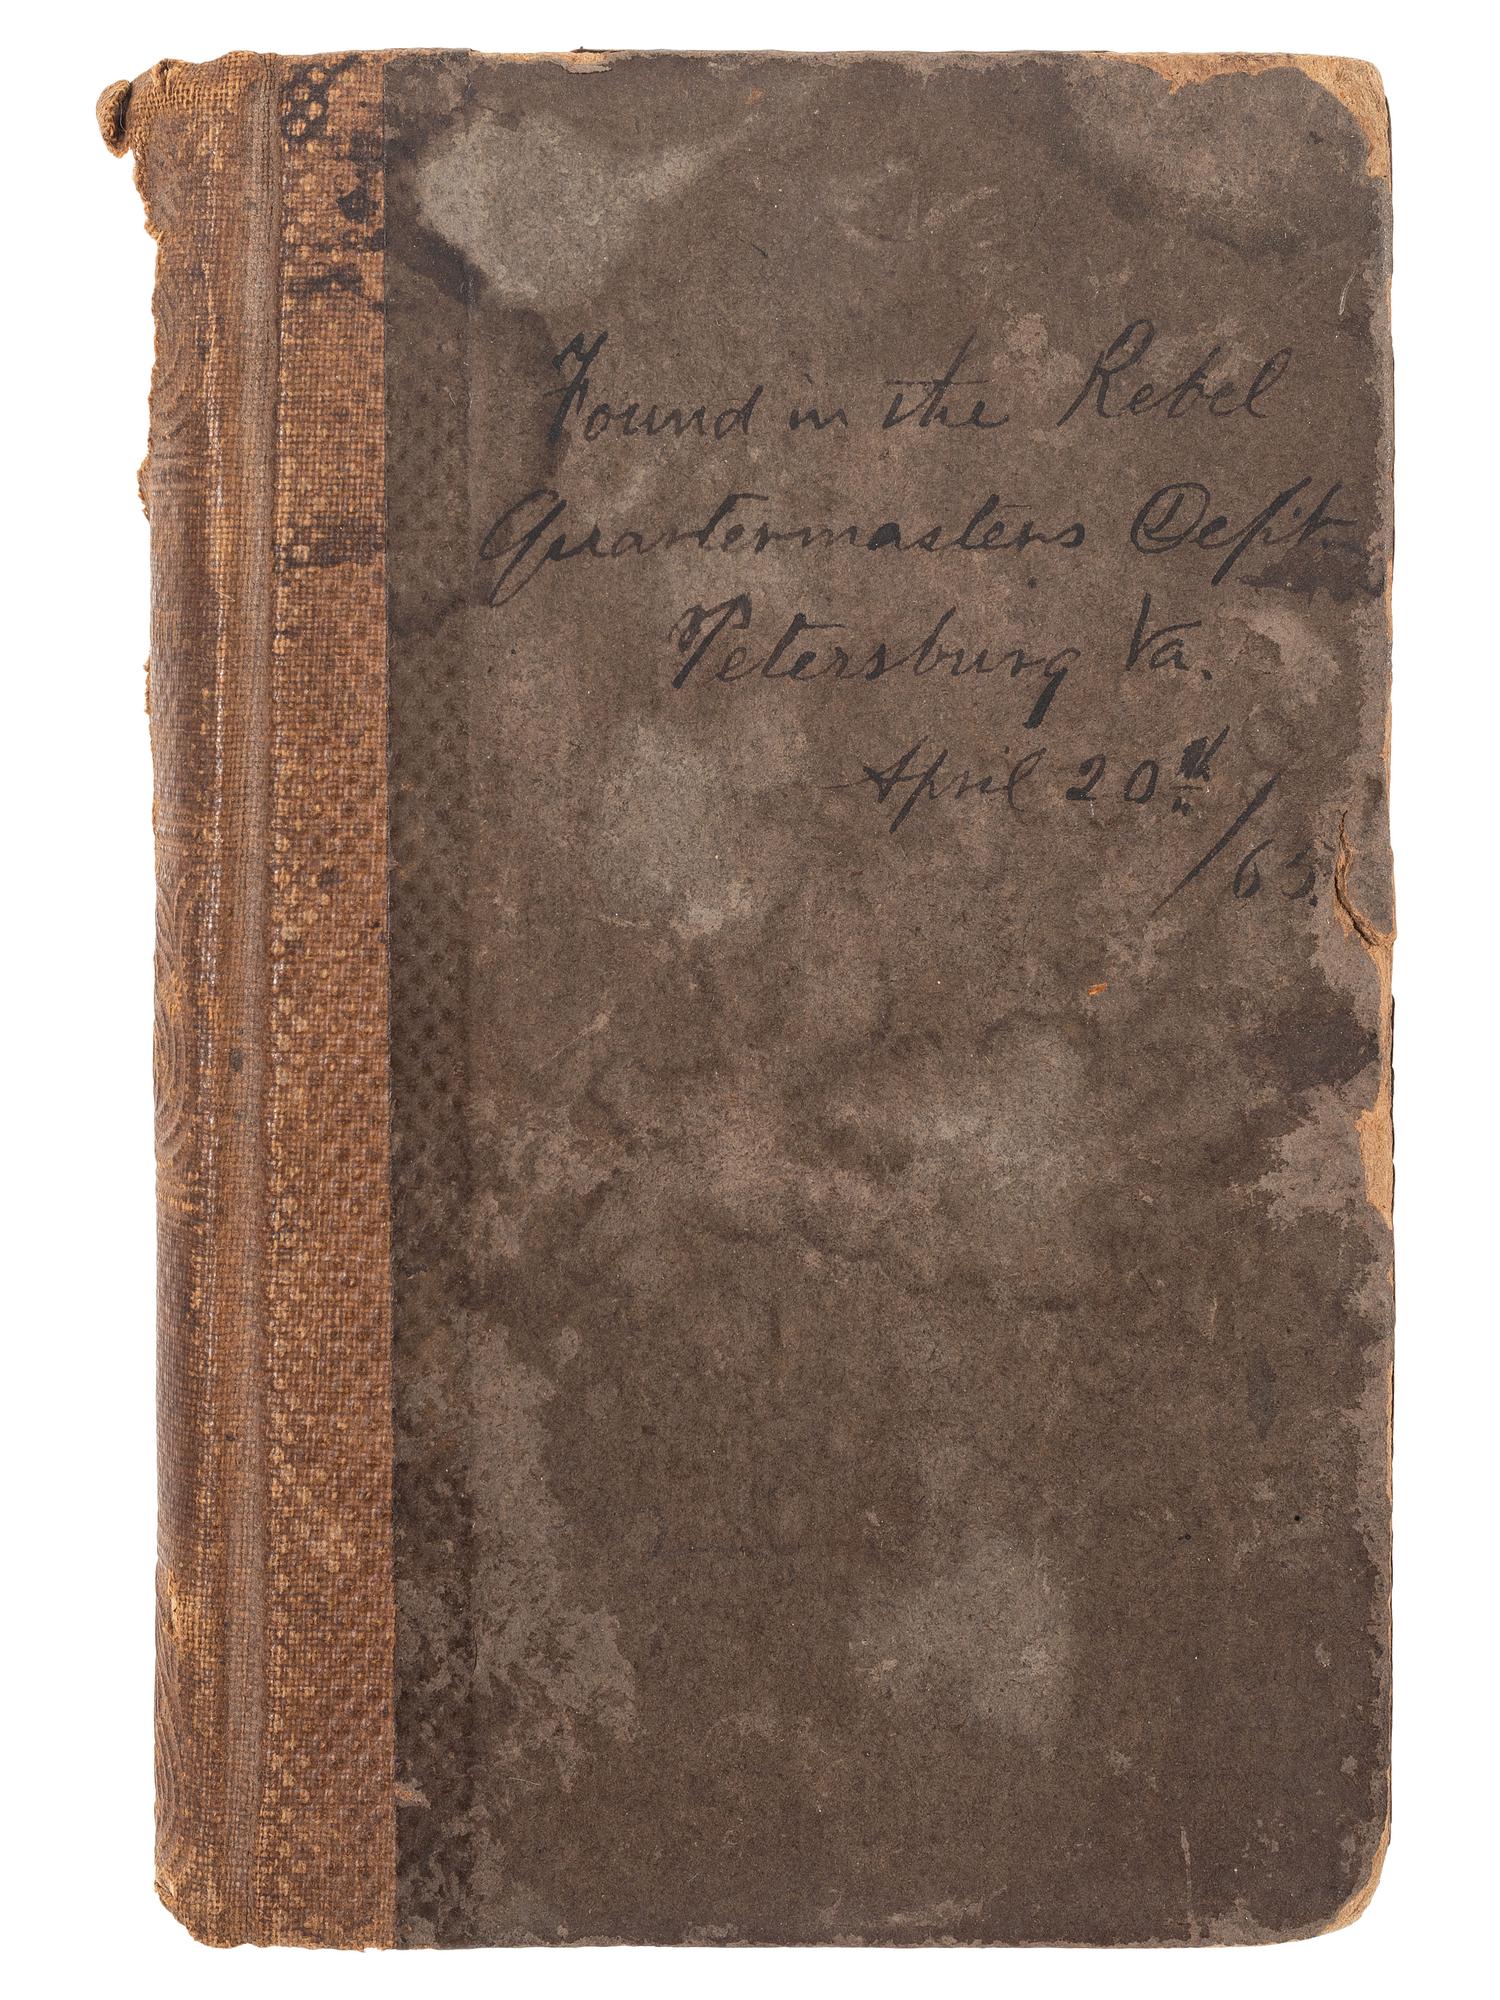 Found in the Rebel
Quartermasters Dept.
Petersburg Va.
April 20th
/65.